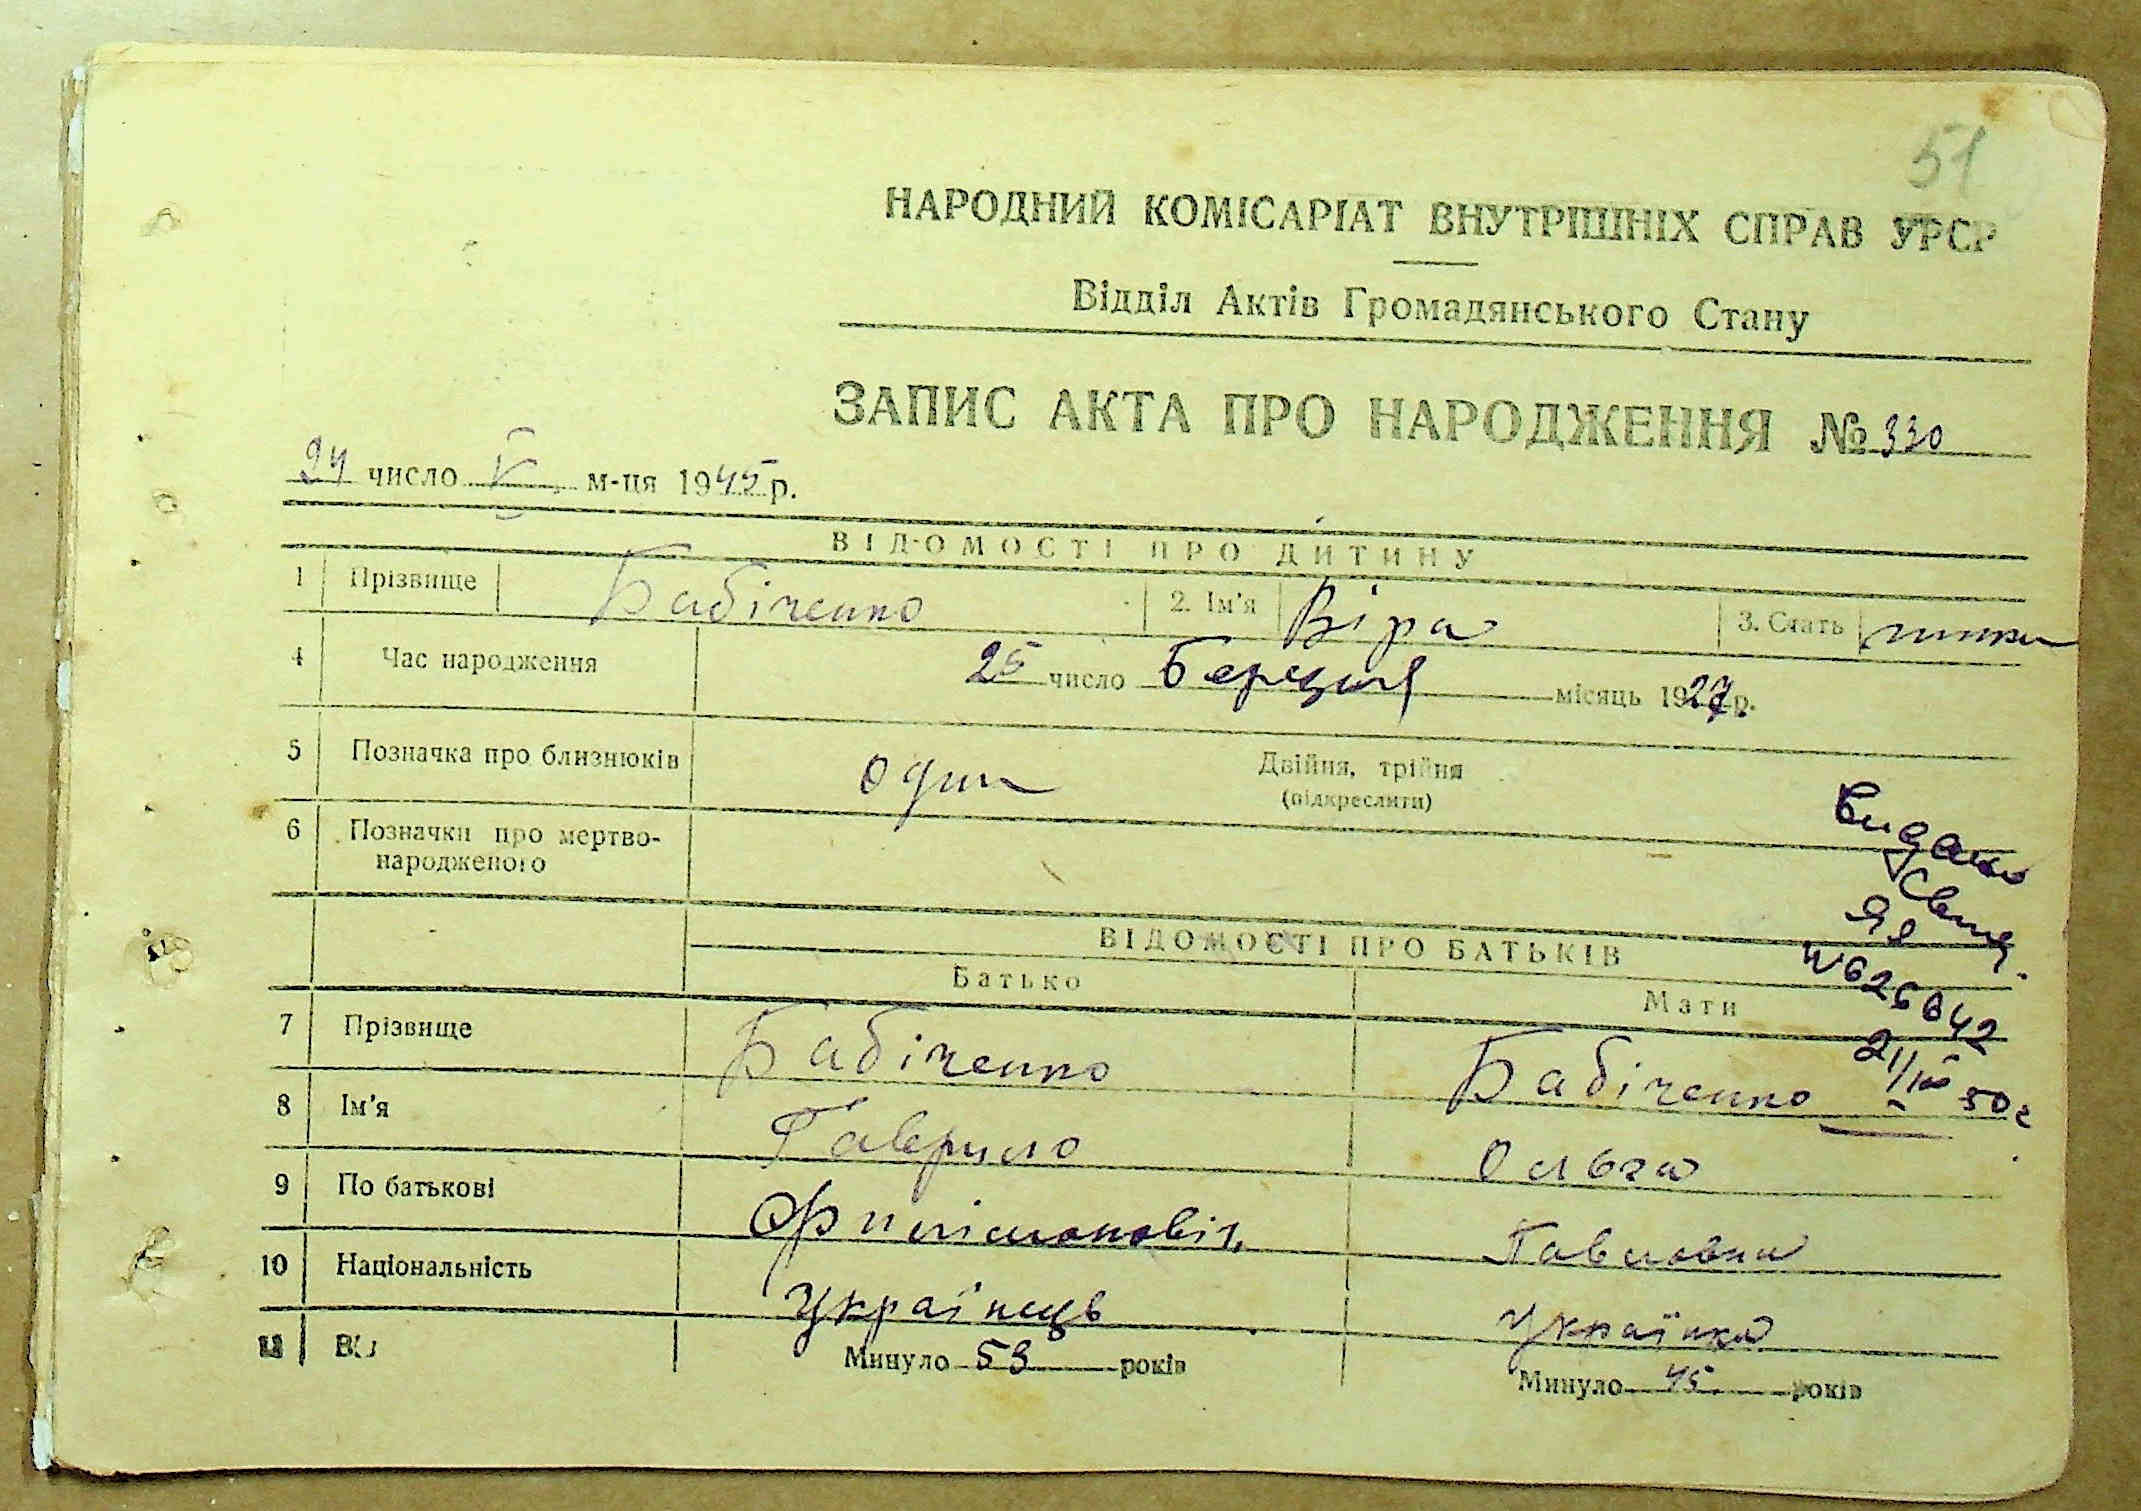 51
НАРОДНИЙ КОМІСАРІАТ ВНУТРІШНІХ СПРАВ УРСР
Відділ Актів Громадянського Стану
ЗАПИС АКТА ПРО НАРОДЖЕННЯ № 330
24 число V м-ця 1945 р.
ВІДОМОСТІ ПРО ДИТИНУ
1 Прізвище Бабіченко 2. Ім'я Віра 3. Стать
4 Час народження 25 число Березня місяць 1927 р.
5 Позначка про близнюків один Двійня, трійня
(підкреслити)
6 Позначки про мертво-
народженого
Видано
ЯЯ
№626842
50 г
ВІДОМОСТІ ПРО БАТЬКІВ
Батько Мати
7 Прізвище Бабіченко Бабіченко
8 Ім'я Гаврило Ольга
9 По батькові Филімоновіч Павловна
10 Національність Українець Українка
11 Вік Минуло 53 років Минуло 45 років